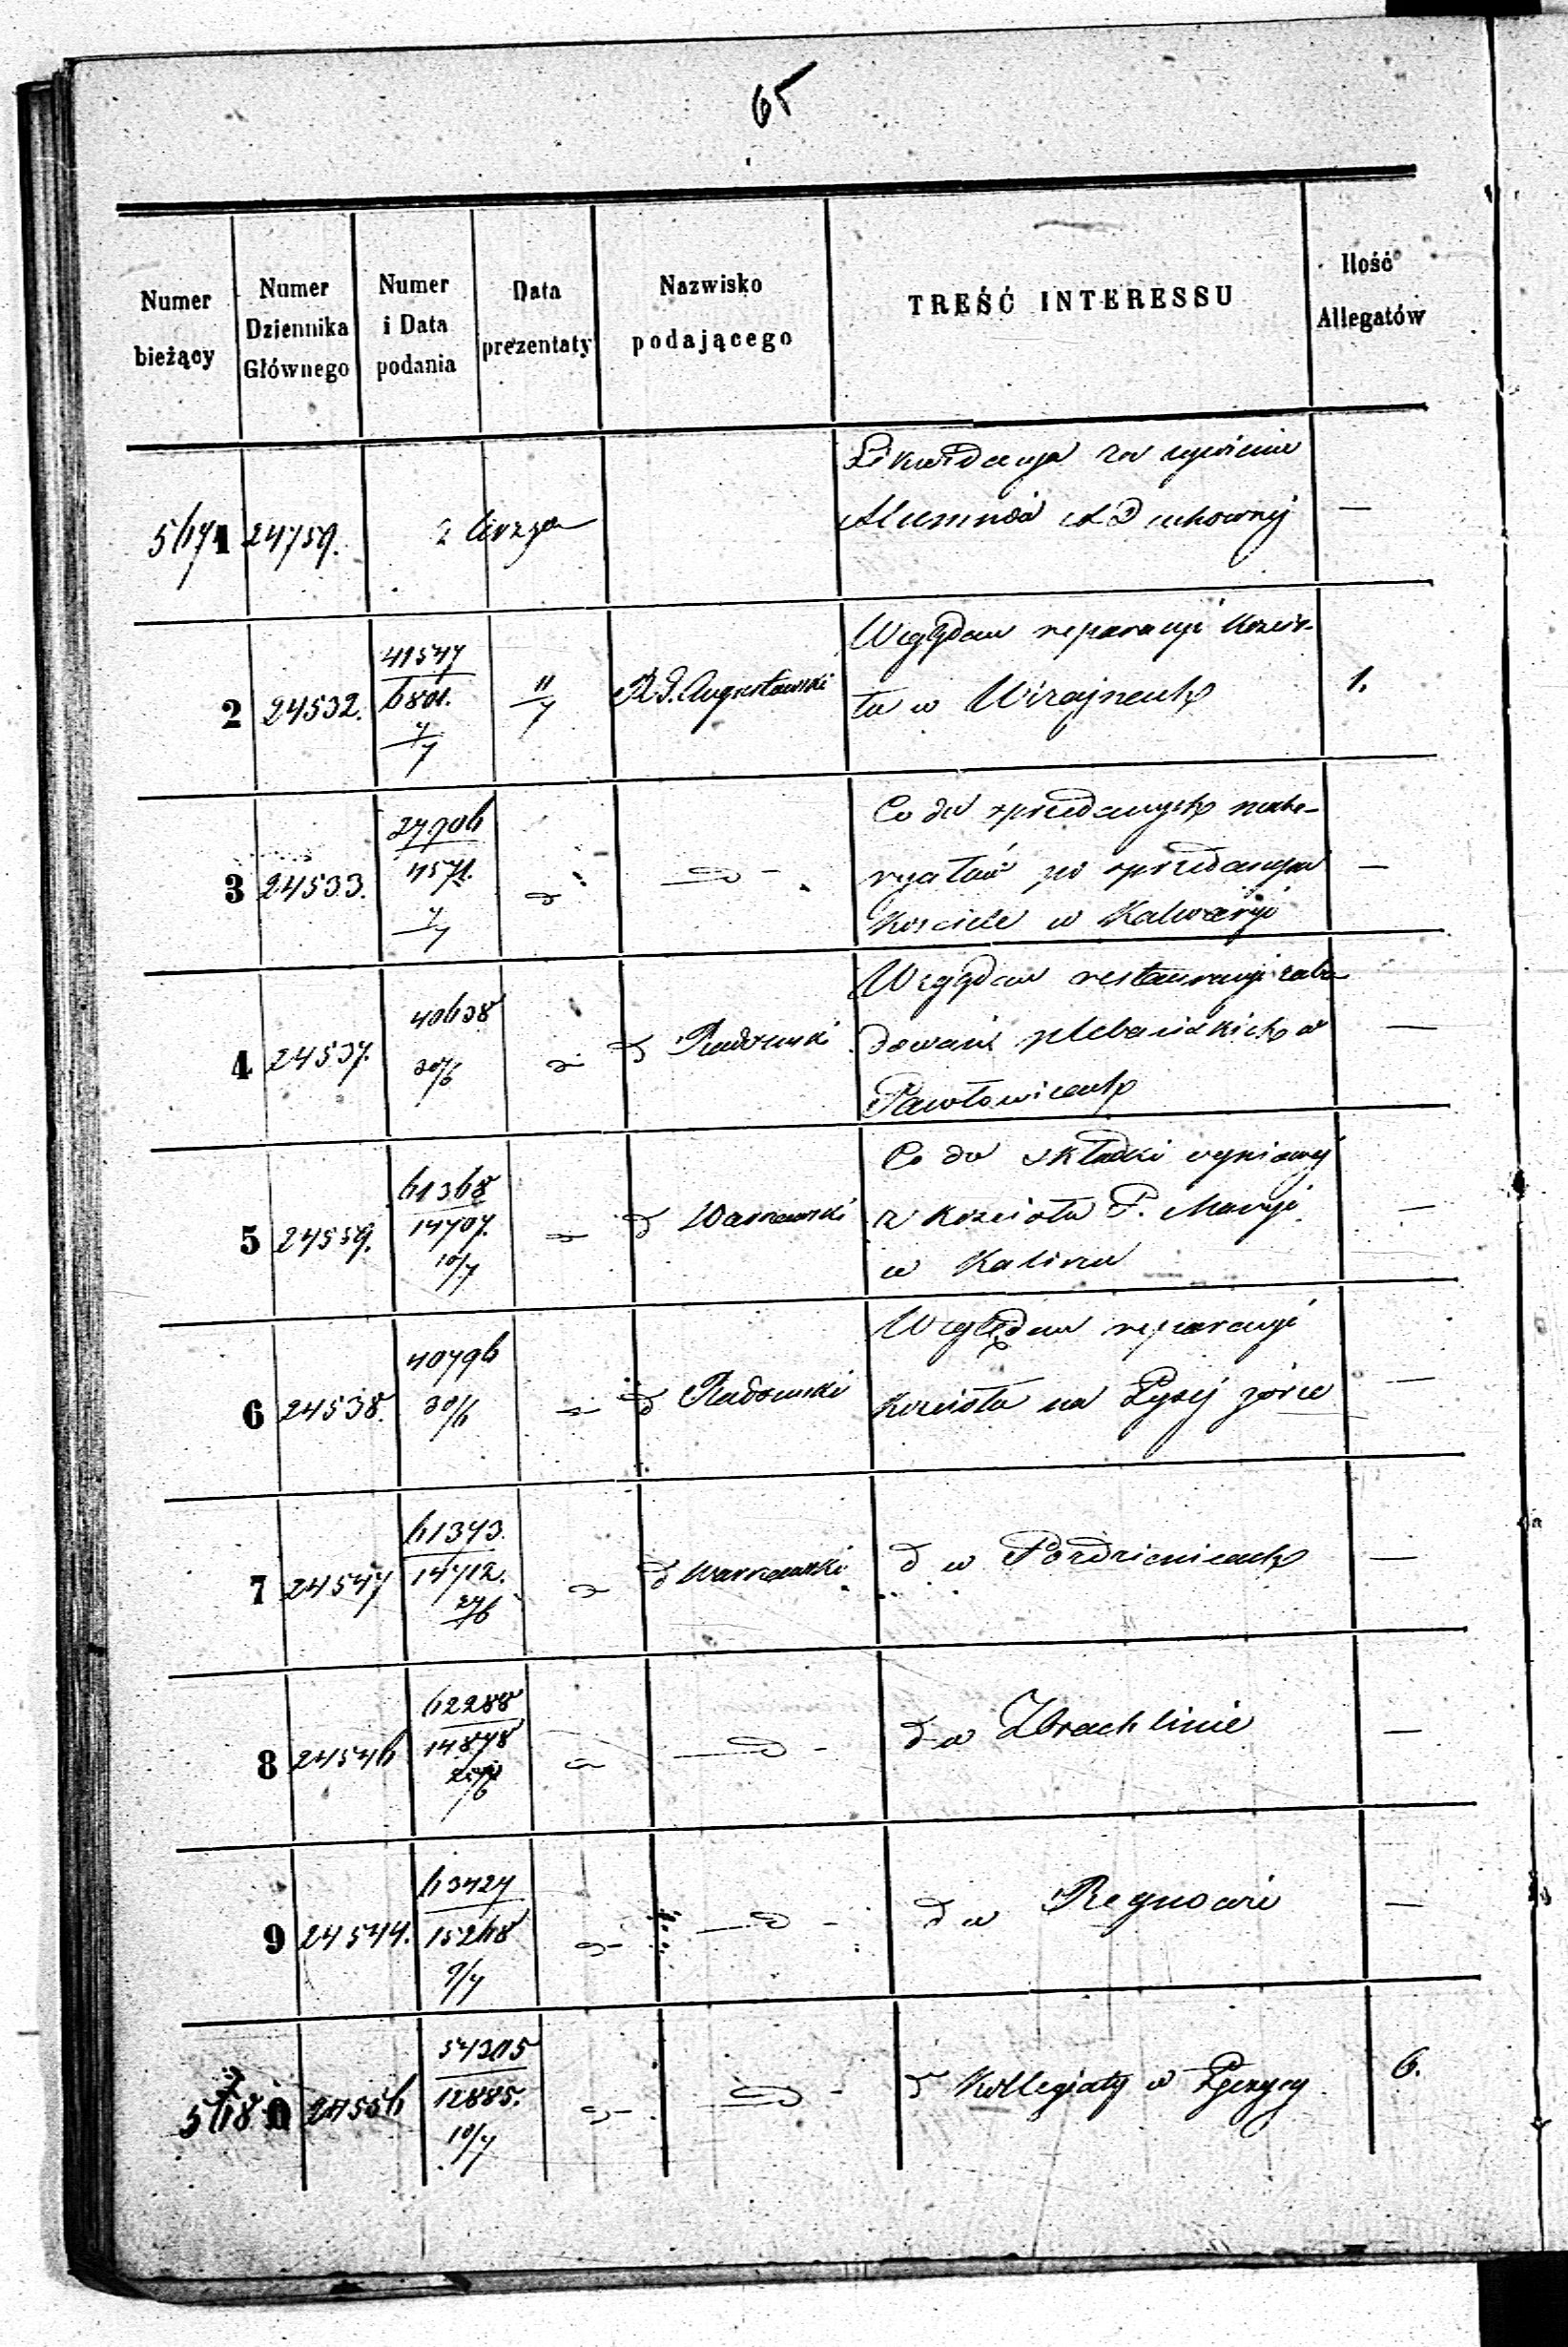 65
Numer bieżący
Numer Dziennika Głównego
Numer i Data podania
Data prezentaty
Nazwisko podającego
TREŚĆ INTERESSU
Ilość Allegatów
5671 24759. z biurza Likwidacya za żywienie
Alumnów A Duchownej —
2 24532. 41547/6801. 4/7 11/7 R. G. Augustowski Względem reparacyi kościo-
ła w Wizajnach 1.
3 24533. 27906/4571. 4/7 d° — d° — Co do sprzedanych mate-
ryałów po sprzedanym
kościele w Kalwaryi —
4 24537. 40638 30/6 d° d° Radomski Względem restauracyi zabu
dowań plebańskich w
Pawłowicach —
5 24559. 61368/14707. 10/7 d° d° Warszawski Co do składki wyniowej
z kościoła P. Maryi
w Kaliszu —
6 24538. 40796 30/6 d° d° Radomski Względem reparacyi
kościoła na Łysej górze —
7 24547 61373./14712. 27/6 d° d° Warszawski d° w Pozdzienicach —
8 24546 62288/14878 d° — d° — d° w Zbrachlinie —
9 24544. 63424/15268 9/7 d° — d° — d° w Regnowie —
5680 24556 54205/12885. 10/7 d° — d° — d° Kollegiaty w Łęczycy 6.